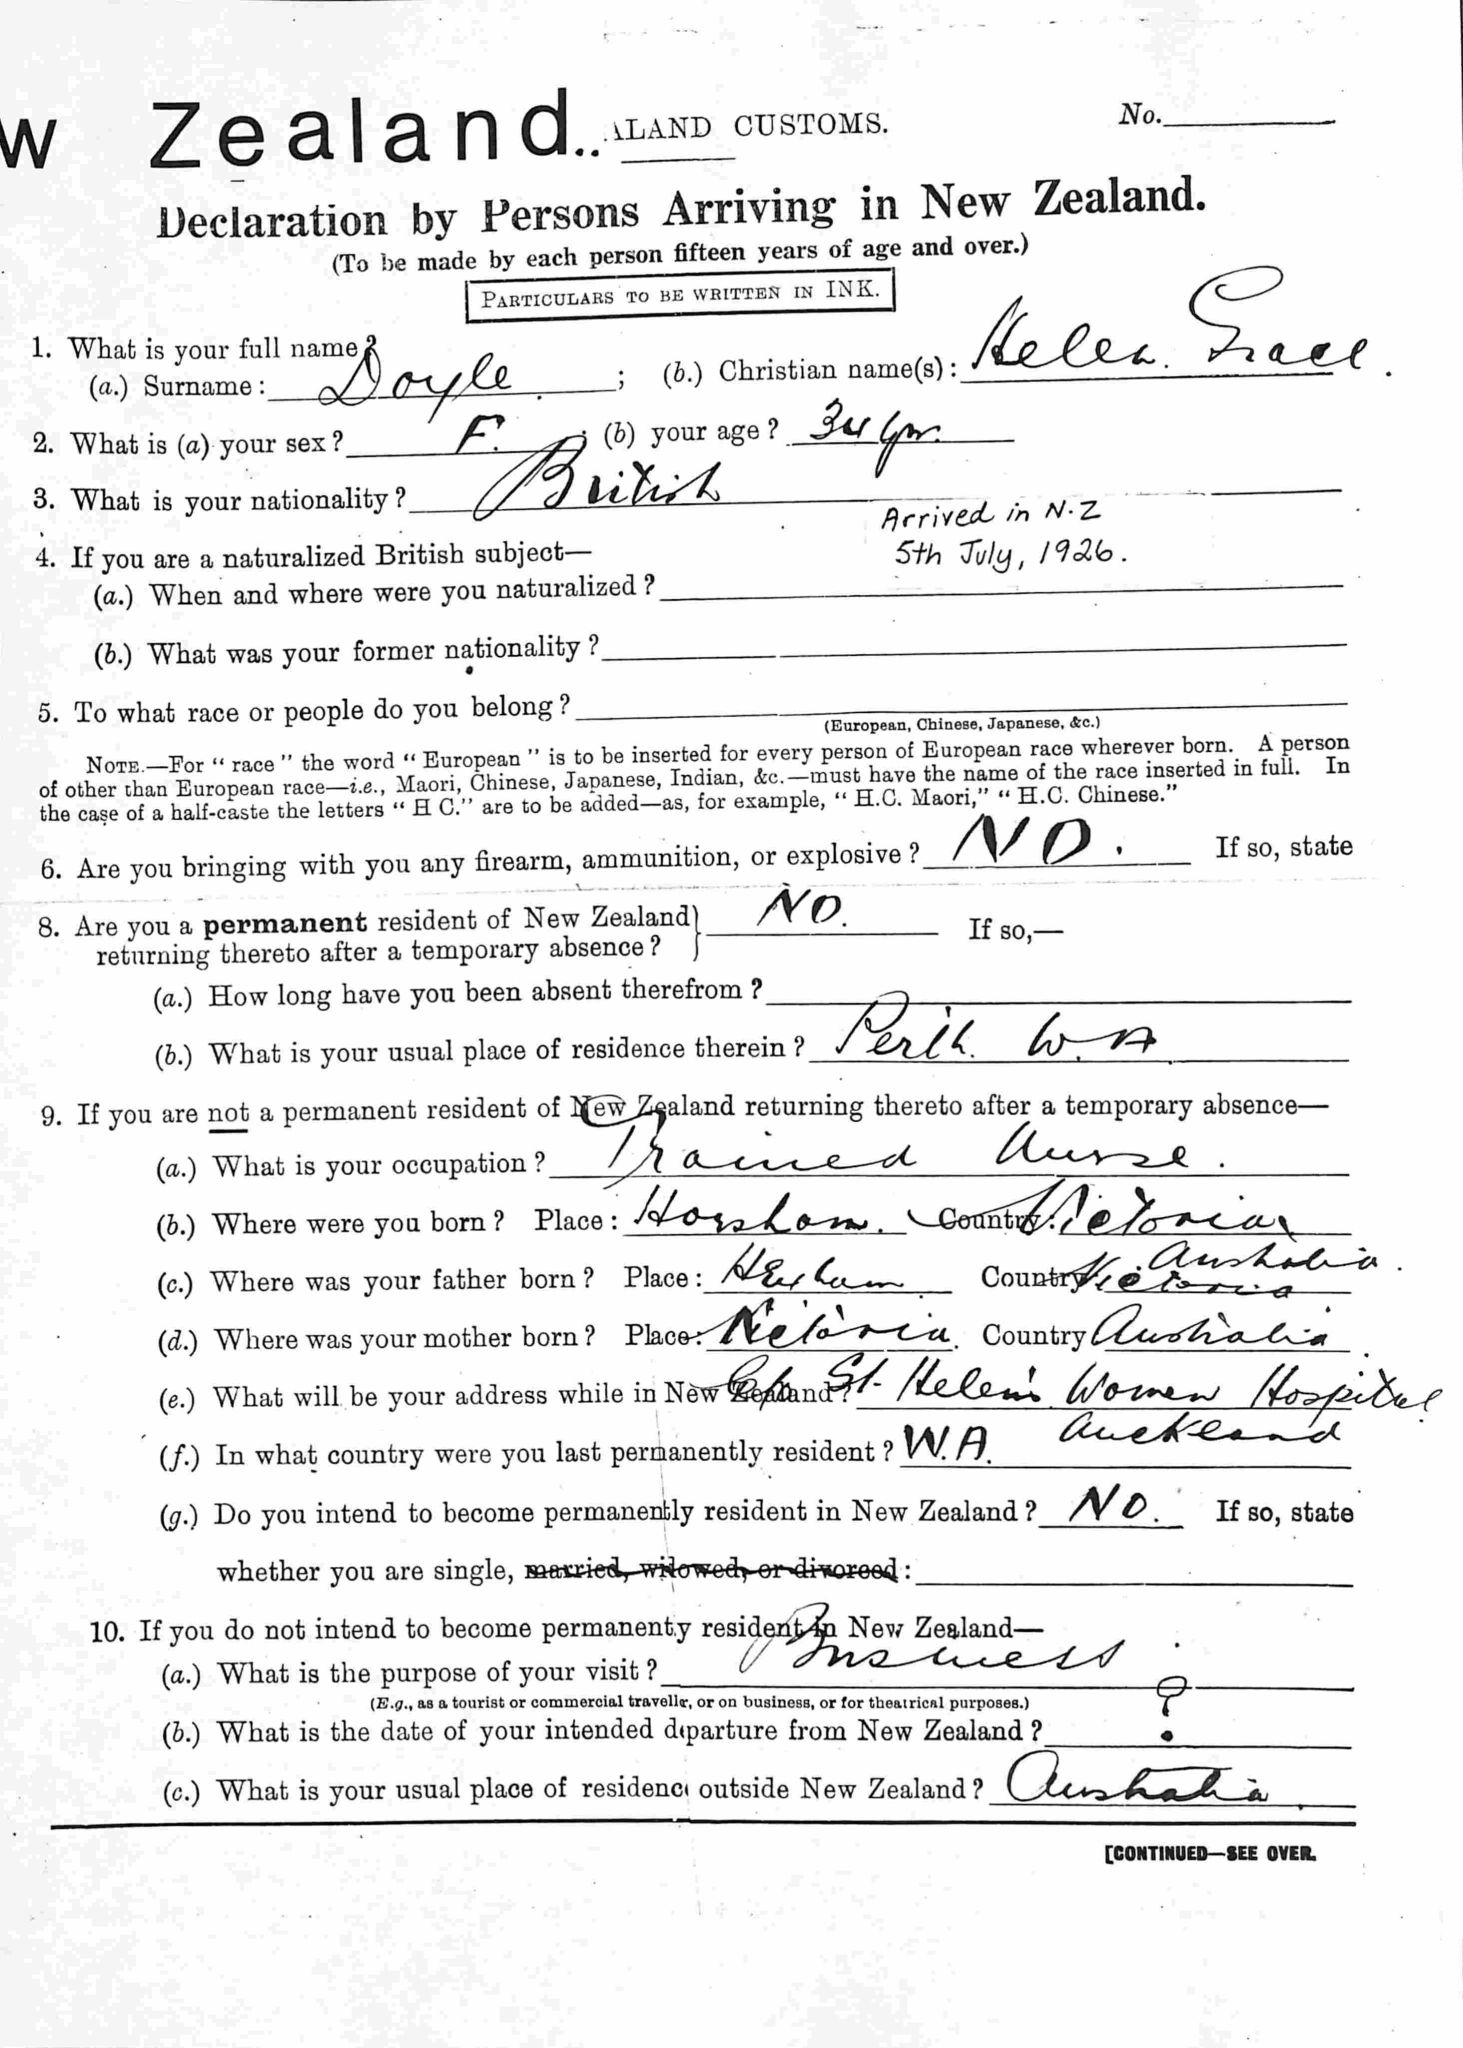 w Zealand..
ALAND CUSTOMS. No.
Declaration by Persons Arriving in New Zealand.
(To be made by each person fifteen years of age and over.)
PARTICULARS TO BE WRITTEN IN INK.
1. What is your full name?
(a.) Surname: Doyle ; (b.) Christian name(s): Helen. Grace.
2. What is (a) your sex? F. ; (b) your age? 34 yrs.
3. What is your nationality? British
Arrived in N.Z
4. If you are a naturalized British subject— 5th July, 1926.
(a.) When and where were you naturalized?
(b.) What was your former nationality?
5. To what race or people do you belong?
(European, Chinese, Japanese, &c.)
NOTE.—For “ race ” the word “ European ” is to be inserted for every person of European race wherever born. A person
of other than European race—i.e., Maori, Chinese, Japanese, Indian, &c.—must have the name of the race inserted in full. In
the case of a half-caste the letters “ H C.” are to be added—as, for example, “ H.C. Maori,” “ H.C. Chinese.”
6. Are you bringing with you any firearm, ammunition, or explosive? NO. If so, state
8. Are you a permanent resident of New Zealand NO. If so,—
returning thereto after a temporary absence?
(a.) How long have you been absent therefrom?
(b.) What is your usual place of residence therein? Perth. W.A
9. If you are not a permanent resident of New Zealand returning thereto after a temporary absence—
(a.) What is your occupation? Trained Nurse.
(b.) Where were you born? Place: Horsham. Country: Victoria
Australia.
(c.) Where was your father born? Place: Hexham Country Victoria
(d.) Where was your mother born? Place: Victoria. Country Australia.
(e.) What will be your address while in New Zealand? St. Helen's Women Hospital
Auckland
(f.) In what country were you last permanently resident? W.A.
(g.) Do you intend to become permanently resident in New Zealand? NO. If so, state
whether you are single, married, widowed, or divorced:
10. If you do not intend to become permanenty resident in New Zealand—
(a.) What is the purpose of your visit? Business
(E.g., as a tourist or commercial traveller, or on business, or for theatrical purposes.)
(b.) What is the date of your intended departure from New Zealand? ?
(c.) What is your usual place of residence outside New Zealand? Australia.
[CONTINUED—SEE OVER.